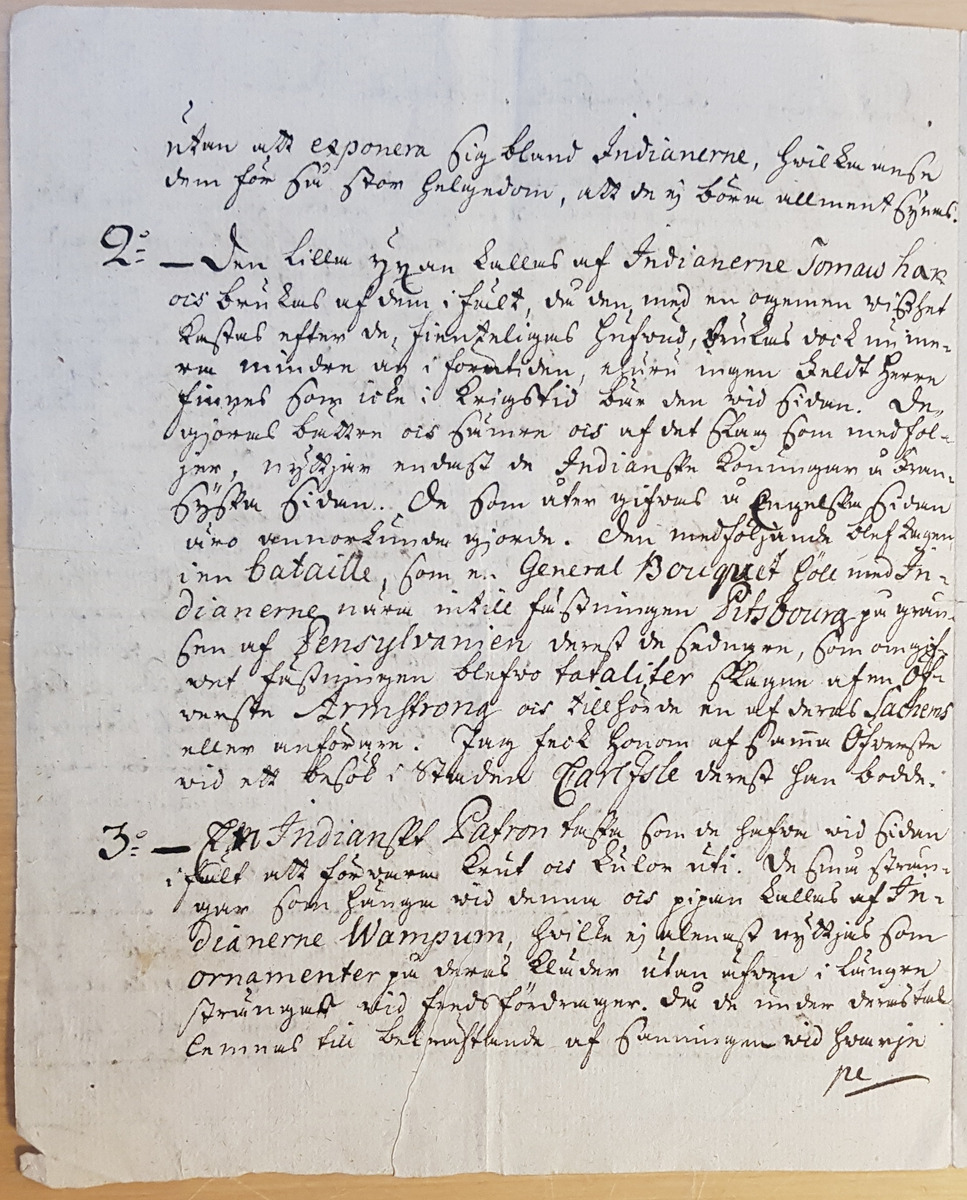 utan att exponera sig bland Indianerne, hvilka anse
dem för så stor helgedom, att de ej böra allment synas.
2:o — Den lilla yxan kallas af Indianerne Tomaw hak
ock brukas af dem i fält, då den med en ogemen visshet
kastas efter de fienteligas hufvud, brukas dock nu me-
ra mindre än i forntiden, ehuru ingen Feldt Herre
finnes som icke i Krigstid bär den vid sidan. De
gjöras bättre ock sämre ock af det slag som medföl-
jer, nyttjar endast de Indianske Konungar å Fran-
syska sidan. De som åter gifvas å Engelska sidan
äro annorlunda gjorde. Den medföljande blef tagen
i en bataille, som en General Bouquet höll med In-
dianerne nära intill fästningen Pitsbourg på grän-
sen af Pensylvanien derest de sednare, som omgif-
vet fästningen blefvo totaliter slagne af en Öf-
verste Armstrong ock tillhörde en af deras Sachems
eller anförare. Jag feck honom af samma Öfverste
vid ett besök i Staden Carlisle derest han bodde.
3:o — En Indiansk Patron taska som de hafva vid sidan
i fält att förvara Krut ock Kulor uti. De små strän-
gar som hänga vid denna ock pipan kallas af In-
dianerne Wampum, hvilke ej alenast nyttjas som
ornamenter på deras kläder utan äfven i längre
strängar vid fredsfördrager. då de under deras tal
lemnas till bekräftande af sanningen vid hvarje
pe